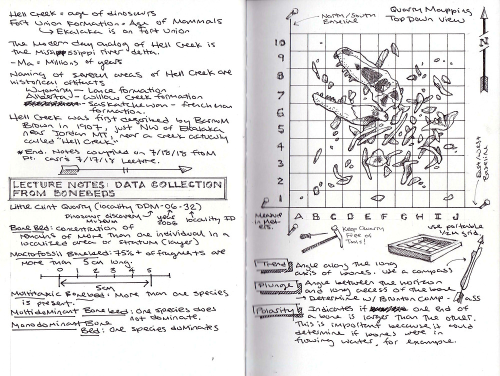 Hell Creek = age of dinosaurs
Fort Union Formation = Age of Mammals
↳ Ekalaka is on Fort Union
The modern day analog of Hell Creek is
the Mississippi River delta.
-Ma = Millions of years
Naming of several areas of Hell Creek are
historical artifacts
Wyoming - Lance formation
Alberta - Willow Creek formation
Saskatchewan - Frenchman
formation.
Hell Creek was first described by Barnum
Brown in 1907, just NW of Ekalaka
near Jordan MT, near a creek actually
called "Hell Creek"
* End. Notes compiled on 7/18/13 from
Dr. Carr's 7/17/13 Lecture.
LECTURE NOTES: DATA COLLECTION
FROM BONEBEDS
Little Clint Quarry (locality DDM-06-32)
Dinosaur discovery museum
year 2006
locality ID
Bone Bed: concentration of
remains of more than one individual in a
localized area or stratum (layer)
Macrofossil Bonebed: 75%+ of fragments are
more than 5 cm long.
0 1 2 3 4 5
5cm
Multitaxic Bonebed: More than one species
is present.
Multidominant Bone bed: One species does
not dominate.
Monodominant Bone
Bed: One species dominates
North/South
Baseline
Quarry Mapping
Top Down View
N
10
9
8
7
6
5
4
3
2
1
East/West
Baseline
Measure
in Met-
ers.
A B C D E F G H I J
Keep Quarry
Free of
This!
use portable
1/2m grid
Trend Angle along the long
axis of bones. Use a compass
Plunge Angle between the horizon
and long access of the bone
→ Determine w/ Brunton Comp-
ass
Polarity Indicates if one end of
a bone is larger than the other.
This is important because it could
determine if bones were in
flowing water, for example.